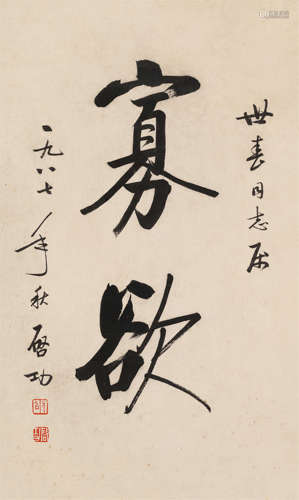 世春同志属
寡欲
一九八七年秋启功